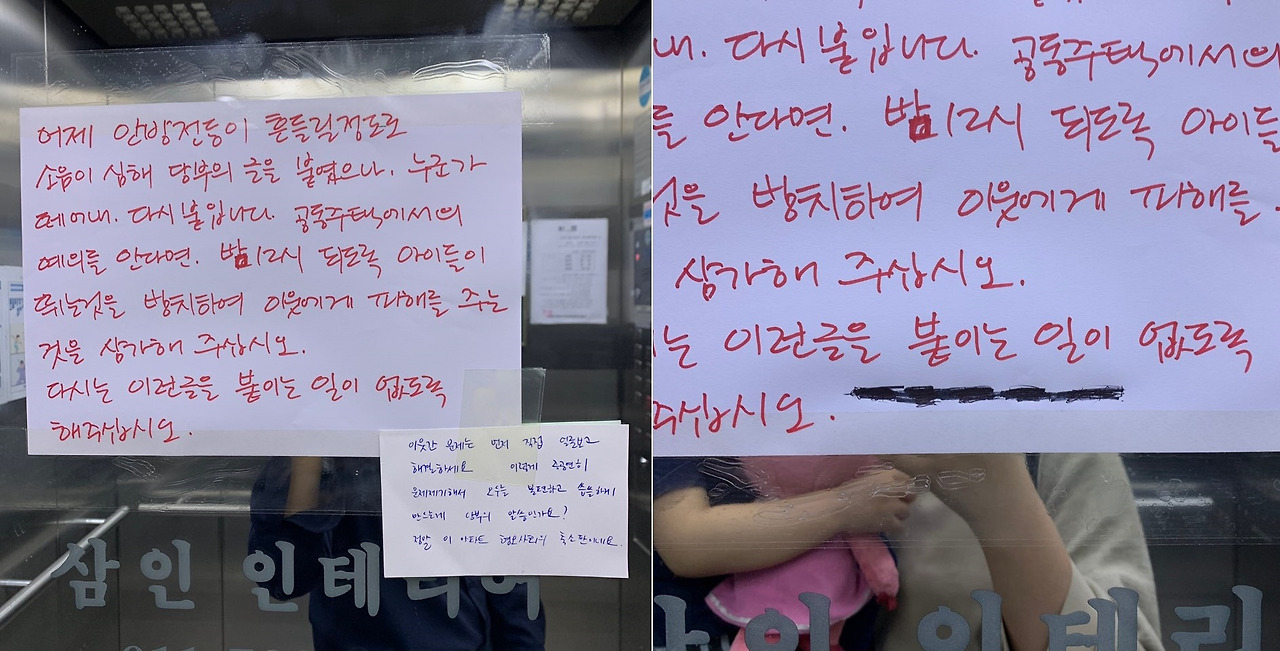 어제 안방전등이 흔들릴정도로
소음이 심해 당부의 글을 붙였으나. 누군가
떼어내. 다시붙입니다. 공동주택에서의
예의를 안다면. 밤12시 되도록 아이들이
뛰는것을 방치하여 이웃에게 피해를 주는
것을 삼가해 주십시오.
다시는 이런글을 붙이는 일이 없도록
해주십시오.
이웃간 문제는 먼저 직접 얼굴보고
해결하세요 이렇게 공공연히
문제제기해서 모두를 불편하고 씁쓸하게
만드는게 당부의 말씀인가요?
정말 이 아파트 혐오사회의 축소판이네요.
삼인 인테리어
내. 다시붙입니다. 공동주택에서의
를 안다면. 밤12시 되도록 아이들
것을 방치하여 이웃에게 피해를
삼가해 주십시오.
는 이런글을 붙이는 일이 없도록
주십시오.
삼인 인테리